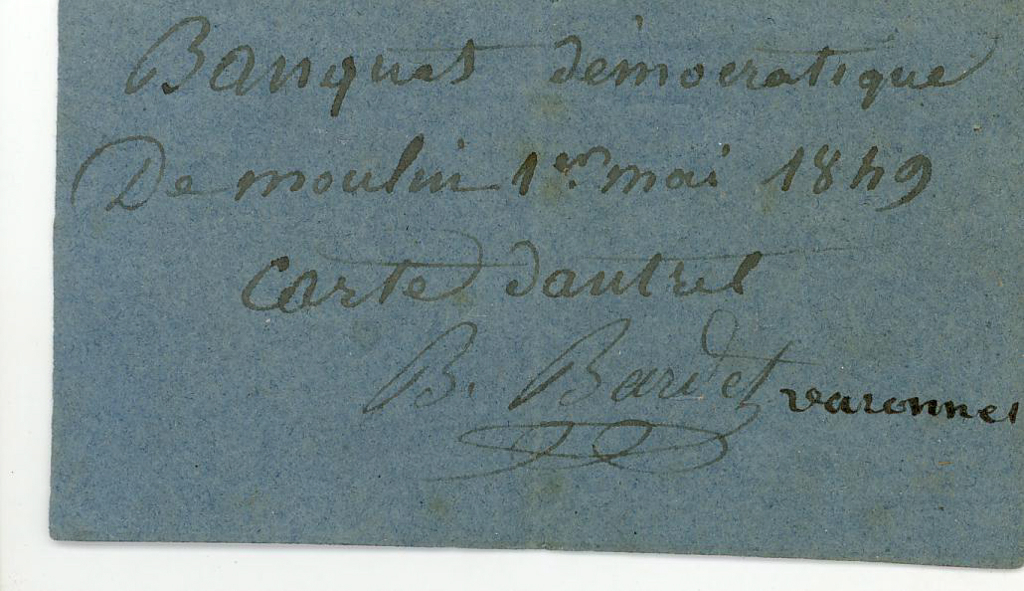 Banquet démocratique
De moulin 1er mai 1849
Carte dantrel
B. Bardet varonnes